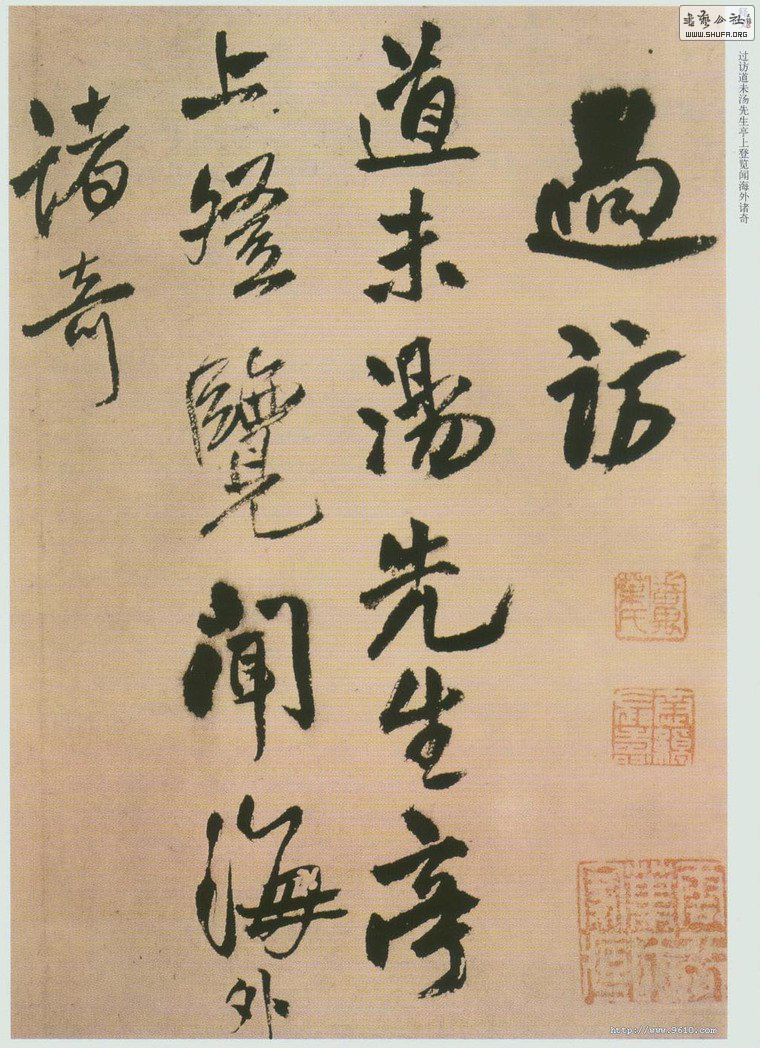 過訪
道未湯先生亭
上登覽聞海外
諸奇
过访道未汤先生亭上登览闻海外诸奇
WWW.SHUFA.ORG
http://www.9610.com